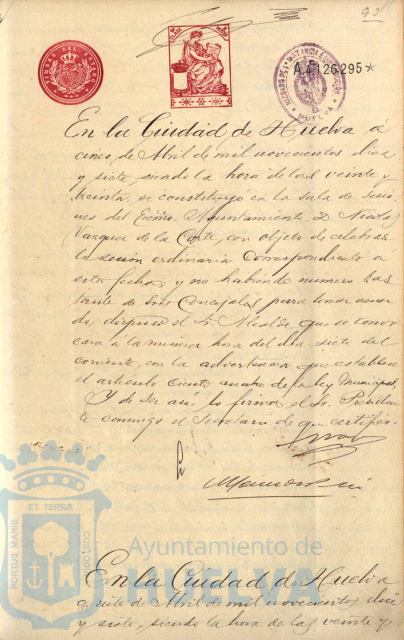 95
TIMBRE DEL ESTADO
A.0.126.295*
HUELVA
En la Ciudad de Huelva á
cinco de Abril de mil novecientos diez
y siete, siendo la hora de las veinte y
treinta, se constituyó en la sala de Sesio-
nes del Excmo. Ayuntamiento D.
Vazquez de la Corte, con objeto de celebrar
la sesión ordinaria correspondiente a
esta fecha, y no habiendo numero bas
tante de Sres Concejales para tomar acuer
do, dispuso el Sr. Alcalde que se convo
cara a la misma hora del dia siete del
corriente, con la advertencia que establece
el articulo ciento cuatro de la ley Municipal.
Y de ser asi lo firma el Sr. Presiden
te conmigo el Secretario de que certifico.
PORTUS MARIS
ET TERRÆ
CUSTODIA
Ayuntamiento de
HUELVA
En la Ciudad de Huelva
a siete de Abril de mil novecientos diez
y siete, siendo la hora de las veinte y